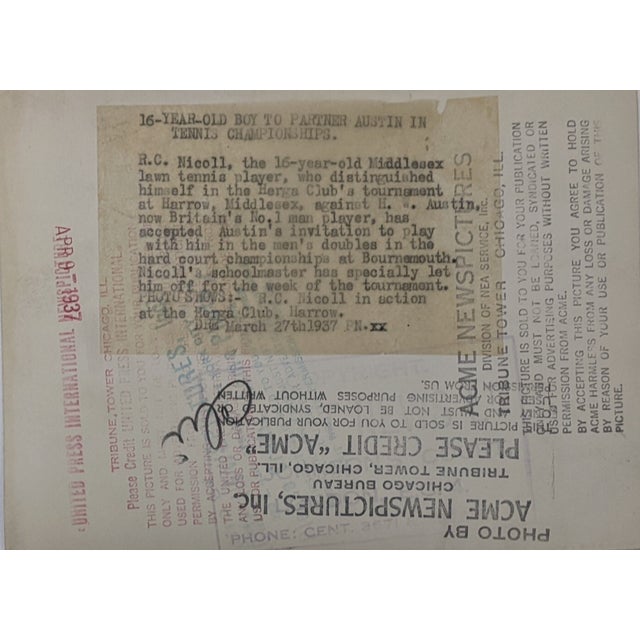 16-YEAR-OLD BOY TO PARTNER AUSTIN IN
TENNIS CHAMPIONSHIPS.
R.C. Nicoll, the 16-year-old Middlesex
lawn tennis player, who distinguished
himself in the Herga Club's tournament
at Harrow, Middlesex, against H. W. Austin,
now Britain's No.1 man player, has
accepted Austin's invitation to play
with him in the men's doubles in the
hard court championships at Bournemouth.
Nicoll's schoolmaster has specially let
him off for the week of the tournament.
PHOTO SHOWS:- R.C. Nicoll in action
at the Herga Club, Harrow.
March 27th1937 PN.xx
APR 9 - 1937
UNITED PRESS INTERNATIONAL
TRIBUNE TOWER CHICAGO, ILL
Please Credit UNITED PRESS INTERNATIONAL
THIS PICTURE IS SOLD TO YOU FOR YOUR PUBLICATION
ONLY AND
USED FOR
PERMISSION
BY ACCEPTING
THE UNITED
ANY LOSS OR
USE OR PUBLICATION
ACME NEWSPICTURES
DIVISION OF NEA SERVICE, Inc.
TRIBUNE TOWER CHICAGO, ILL.
THIS PICTURE IS SOLD TO YOU FOR YOUR PUBLICATION
ONLY AND MUST NOT BE LOANED, SYNDICATED OR
USED FOR ADVERTISING PURPOSES WITHOUT WRITTEN
PERMISSION FROM ACME.
BY ACCEPTING THIS PICTURE YOU AGREE TO HOLD
ACME HARMLESS FROM ANY LOSS OR DAMAGE ARISING
BY REASON OF YOUR USE OR PUBLICATION OF THIS
PICTURE.
PHOTO BY
ACME NEWSPICTURES, Inc.
CHICAGO BUREAU
TRIBUNE TOWER, CHICAGO, ILL.
PLEASE CREDIT "ACME"
PICTURE IS SOLD TO YOU FOR YOUR PUBLICATION
AND MUST NOT BE LOANED, SYNDICATED
OR ADVERTISING PURPOSES WITHOUT WRITTEN
FROM US.
PHONE: CENT.